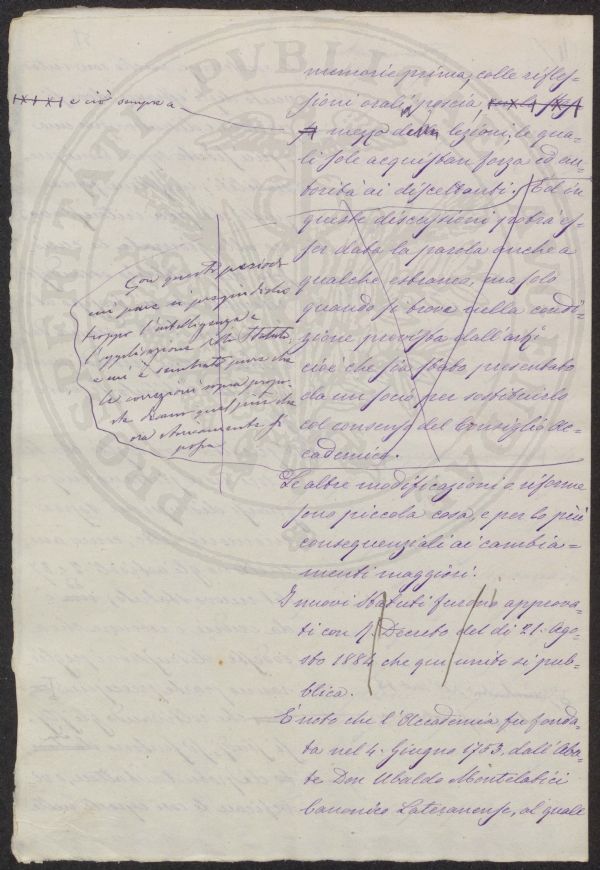 memorie prima, colle rifles-
sioni orali poscia
e ciò sempre a
mezzo delle lezioni, le qua-
li sole acquistan forza ed au-
torità ai discettanti. Ed in
queste discussioni potrà es-
ser data la parola anche a
qualche estraneo, ma solo
quando si trova nella condi-
zione prevista dall'art.
cioè che sia stato presentato
da un socio per sostituirlo
col consenso del Consiglio Ac-
cademico.
Con questo periodo
mi pare si pregiudichi
troppo l'intelligenza e
l'applicazione dello Statuto,
e mi è sembrato pure che
le correzioni sopra propo-
ste diano quel più che
ora storicamente si
possa
Le altre modificazioni o riforme
sono piccola cosa, e per lo più
consequenziali ai cambia-
menti maggiori.
I nuovi Statuti furono approva-
ti con R. Decreto del dì 21. Ago-
sto 1884 che qui unito si pub-
blica.
È noto che l'Accademia fu fonda-
ta nel 4. Giugno 1753. dall'Aba-
te Don Ubaldo Montelatici
Canonico Lateranense, al quale
PROSPERITATI PVBLICAE